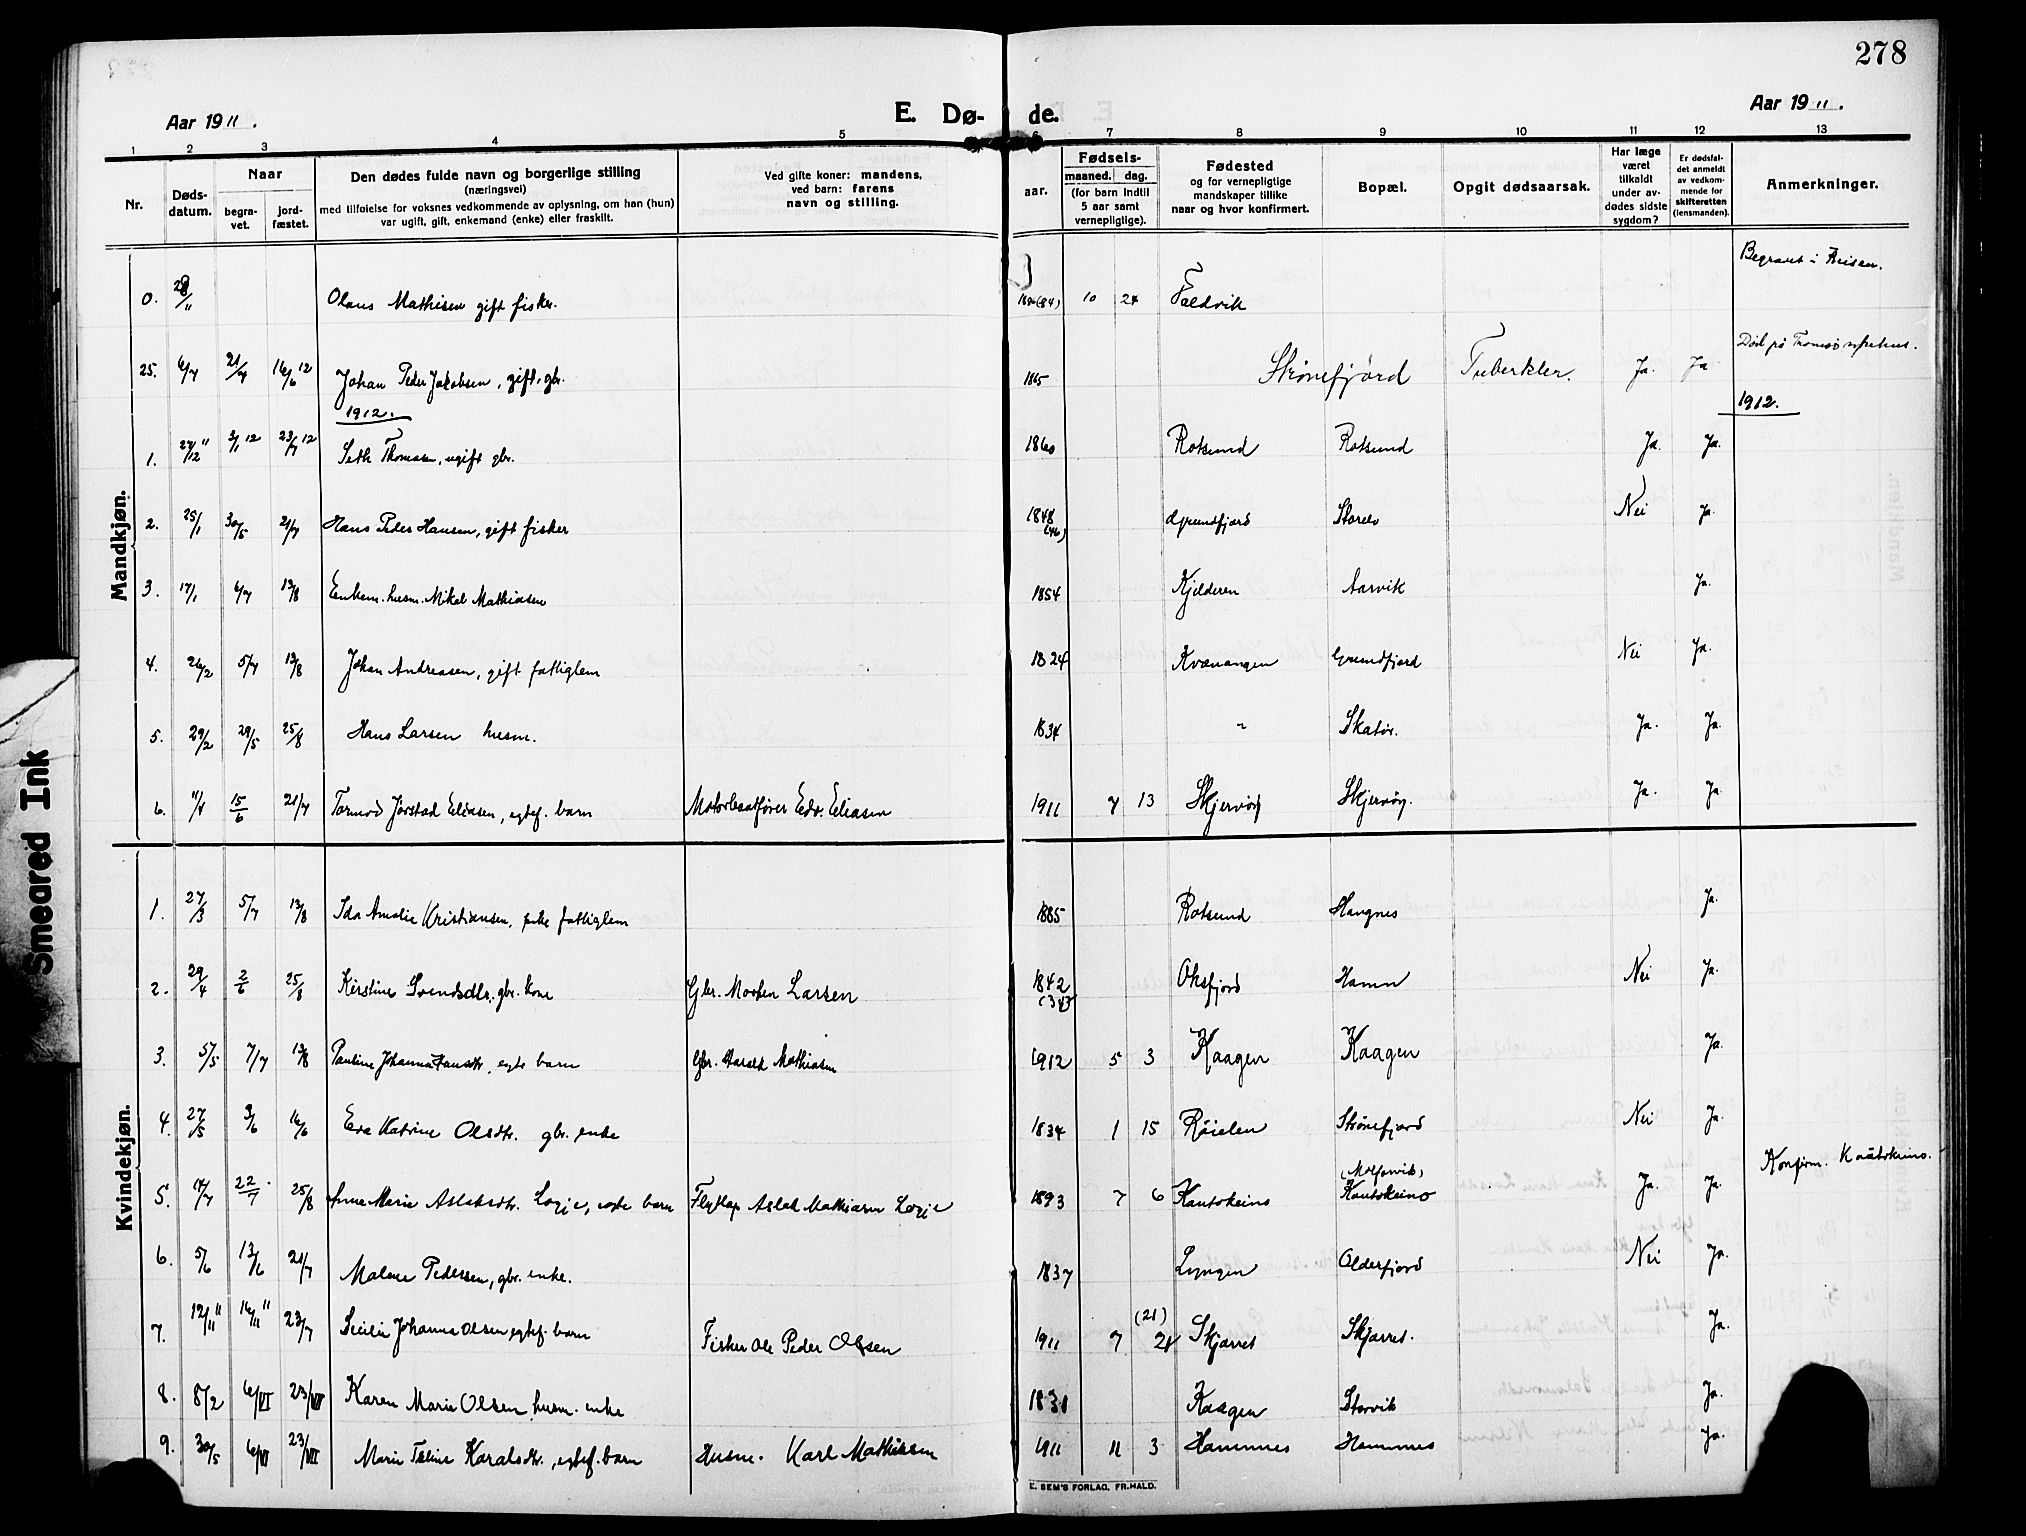 278
Aar 1911.
E. Dø- de.
Aar 1911.
1 2 3 4 5 6 7 8 9 10 11 12 13
Nr.
Døds-datum.
Naar
begra-vet.
jord-fæstet.
Den dødes fulde navn og borgerlige stilling
(næringsvei)
med tilføielse for voksnes vedkommende av oplysning, om han (hun)
var ugift, gift, enkemand (enke) eller fraskilt.
Ved gifte koner: mandens,
ved barn: farens
navn og stilling.
Fødsels-
aar.
maaned. dag.
(for barn indtil
5 aar samt
vernepligtige).
Fødested
og for vernepligtige
mandskaper tillike
naar og hvor konfirmert.
Bopæl.
Opgit dødsaarsak.
Har læge
været
tilkaldt
under av-
dødes sidste
sygdom?
Er dødsfal-
det anmeldt
av vedkom-
mende for
skifteretten
(lensmanden).
Anmerkninger.
Mandkjøn.
0. Olaus Mathisen gift fisker. 10 24 Begravet i
25. 6/7 21/7 16/6 12 Johan Peder Jakobsen, gift, gbr. 1865 Strønefjord Tuberkler. Ja. Ja Død på Tromsø
1912. 1912.
1. 27/12 11 3/1 12 23/7 12 Seth Thomsen, ugift gbr. 1860 Rotsund Rotsund Ja. Ja.
2. 25/1 30/5 21/7 Hans Peder Hansen, gift fisker 1848 (46) Grundfjord Nei Ja.
3. 17/1 6/7 13/8 Enkem. husm. Mikal Mathiasen 1854 Kjelderen Aarvik Ja.
4. 26/2 5/7 13/8 Johan Andreasen, gift fattiglem 1824 Kvænangen Grundfjord Nei Ja.
5. 29/2 29/5 25/8 Hans Larsen husm. 1834 " Skatør. Ja. Ja.
6. 11/4 15/6 21/7 Tormod Jørstad Eliasen, egtef. barn Motorbaatfører Edv. Eliasen 1911 7 13 Skjervøy Skjervøy. Ja. Ja.
Kvindekjøn.
1. 27/3 5/7 13/8 Ida Amalie Kristiansen, enke fattiglem 1885 Rotsund Haugnes Ja.
2. 29/4 2/6 25/8 Kirstine Svendsdtr. gbr. kone Gbr. Morten Larsen 1842 Oksfjord Hamn Nei Ja.
3. 5/5 7/7 13/8 Pauline Johanna egte barn Gbr. Harald Mathiasen 1912 5 3 Kaagen Kaagen Ja.
4. 27/5 9/6 16/6 Eva Katrine Olsdtr. gbr. enke 1834 1 15 Røielen Strønefjord Nei Ja.
5. 22/7 25/8 Anna Marie Aslaksdtr. Logje, egte barn Flytlap Aslak Mathiasen Logje 1893 7 6 Kautokeino Kautokeino Ja. Ja. Konfirm. Kautokeino.
6. 5/6 13/6 21/7 Malene Pedersen, gbr. enke. 1837 Lyngen Olderfjord Nei Ja.
7. 12/11 11 16/11 11 23/7 Secilie Johanna Olsen egtef. barn Fisker Ole Peder Olsen 1911 7 (21) 21 Skjærvet Skjærvet. Ja.
8. 8/2 6/VI 23/VII Karen Marie Olsen husm. enke 1831 Kaagen Storvik Ja.
9. 30/5 6/VI 23/VII Marie Karlsdtr., egtef. barn Husm. Karl Mathiasen 1911 11 3 Hamnnes Hamnnes Ja.
E. SEM'S FORLAG, FR.HALD.
Smeared Ink